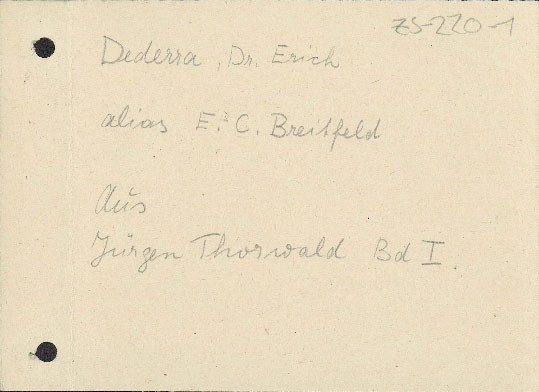 ZS-220-1
Dederra, Dr. Erich
alias E. C. Breitfeld
Aus
Jürgen Thorwald Bd I.